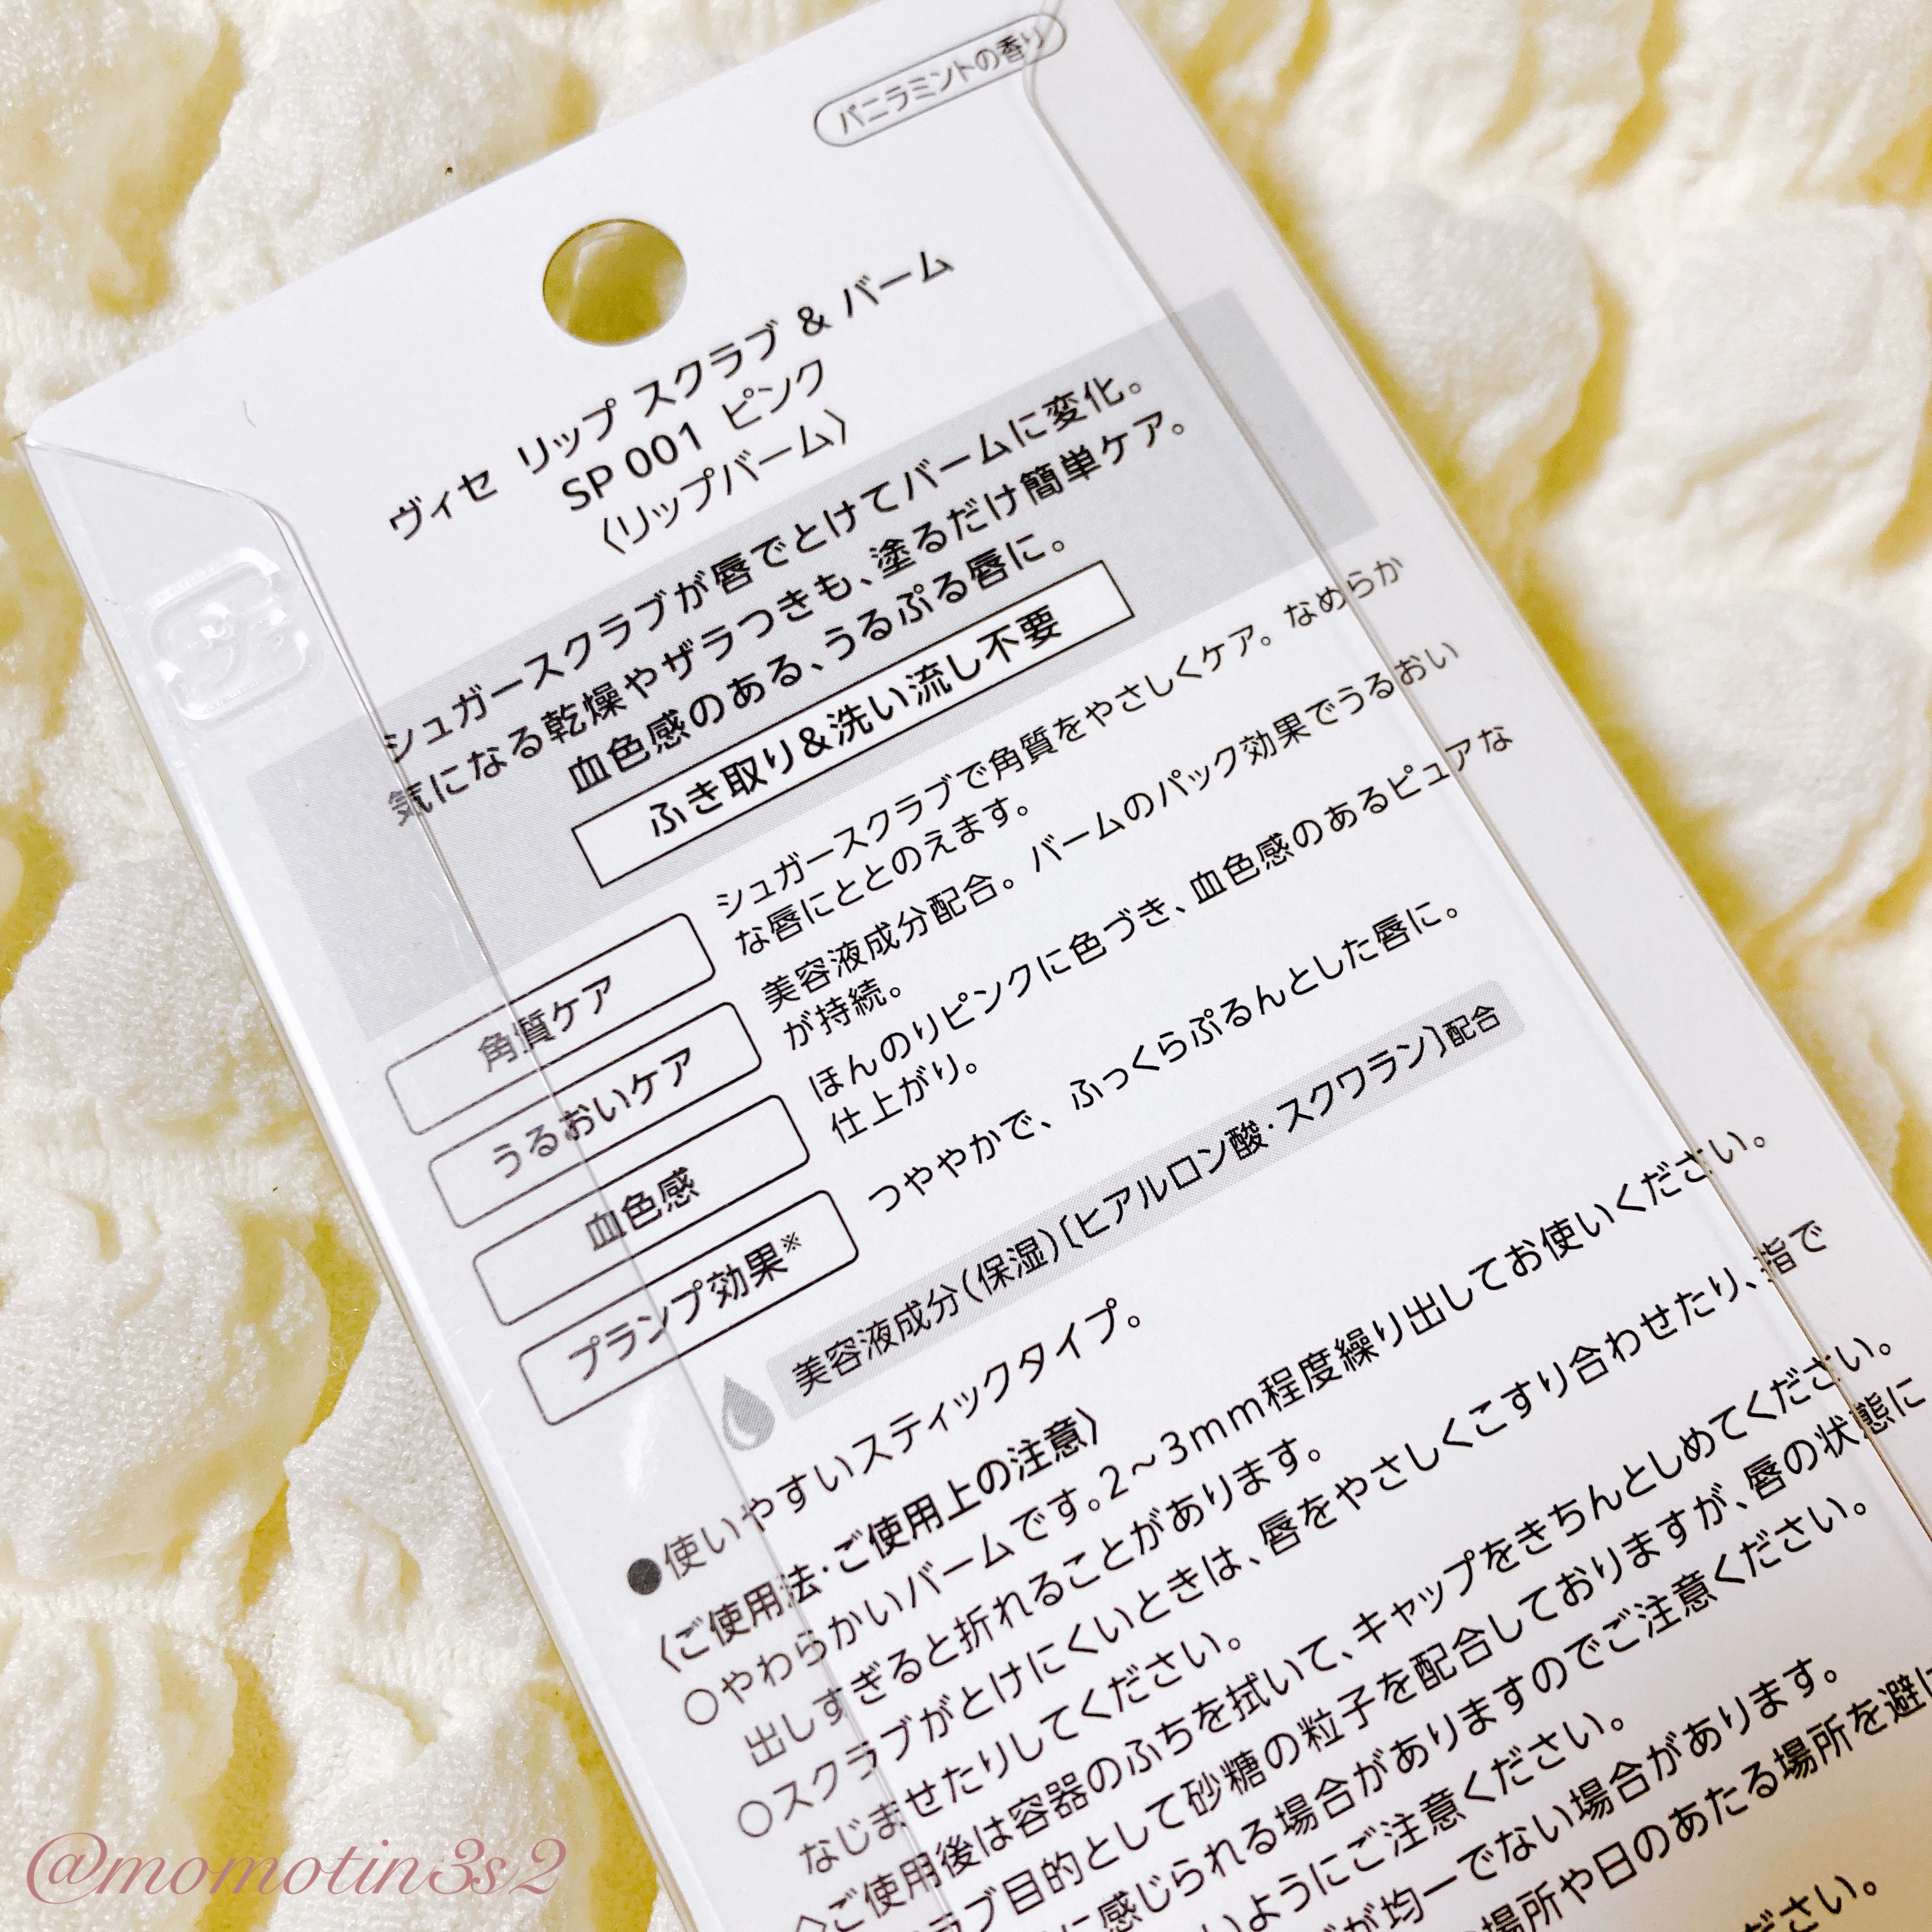 バニラミントの香り
ヴィセ リップ スクラブ & バーム
SP 001 ピンク
〈リップバーム〉
シュガースクラブが唇でとけてバームに変化。
気になる乾燥やザラつきも、塗るだけ簡単ケア。
血色感のある、うるぷる唇に。
ふき取り&洗い流し不要
角質ケア
シュガースクラブで角質をやさしくケア。なめらか
な唇にととのえます。
うるおいケア
美容液成分配合。バームのパック効果でうるおい
が持続。
血色感
ほんのりピンクに色づき、血色感のあるピュアな
仕上がり。
プランプ効果※
つややかで、ふっくらぷるんとした唇に。
美容液成分(保湿)〔ヒアルロン酸・スクワラン〕配合
●使いやすいスティックタイプ。
〈ご使用法・ご使用上の注意〉
○やわらかいバームです。2~3mm程度繰り出してお使いください。
出しすぎると折れることがあります。
○スクラブがとけにくいときは、唇をやさしくこすり合わせたり、指で
なじませたりしてください。
ご使用後は容器のふちを拭いて、キャップをきちんとしめてください。
ラブ目的として砂糖の粒子を配合しておりますが、唇の状態に
に感じられる場合がありますのでご注意ください。
いようにご注意ください。
が均一でない場合があります。
場所や日のあたる場所を避け
ださい。
@momotin3s2